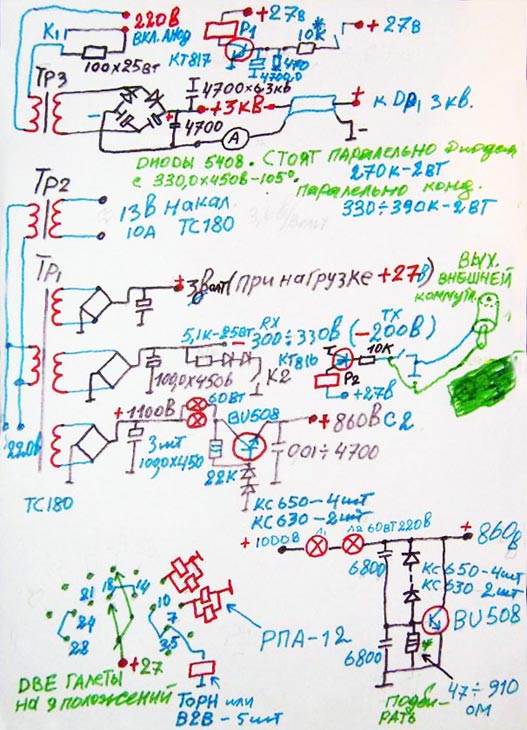 220В
ВКЛ. АНОД
К1
100×25Вт
P1
+27В
КТ817
10К*
470
4700,0
+27В
ТР3
4700×6,3кВ
+3кВ
4700
А
+ к ДР1 3кв.
ДИОДЫ 5408. СТОЯТ ПАРАЛЕЛЬНО ДИОДАМ
с 330,0×450В-105°.
270К-2ВТ
ПАРАЛЕЛЬНО КОНД.
330÷390К-2ВТ
ТР2
13В НАКАЛ
10А ТС180
ТР1
+ 3Волт (при нагрузке +27В)
ВЫХ.
ВНЕШНЕЙ
КОММУТ.
5,1К-25ВТ
RX
-300÷330В
TX
(-200В)
100,0×450В
К2
КТ816
10К
P2
+27В
+1100В
60ВТ
BU508
+ 860В С2
3 шт
100,0×450
22К
0,01÷4700
~220В
ТС180
КС650-4шт
КС630-2шт
+ 1000В
Л1
Л2
60ВТ 220В
+ 860В
6800
КС650-4шт
КС630-2шт
BU508
6800
*
47÷910
ОМ
ПОДБИ-
РАТЬ
18
14
21
24
28
10
7
3,5
+27
РПА-12
ДВЕ ГАЛЕТЫ
НА 9 ПОЛОЖЕНИЙ
ТОРН ИЛИ
В2В-5шт